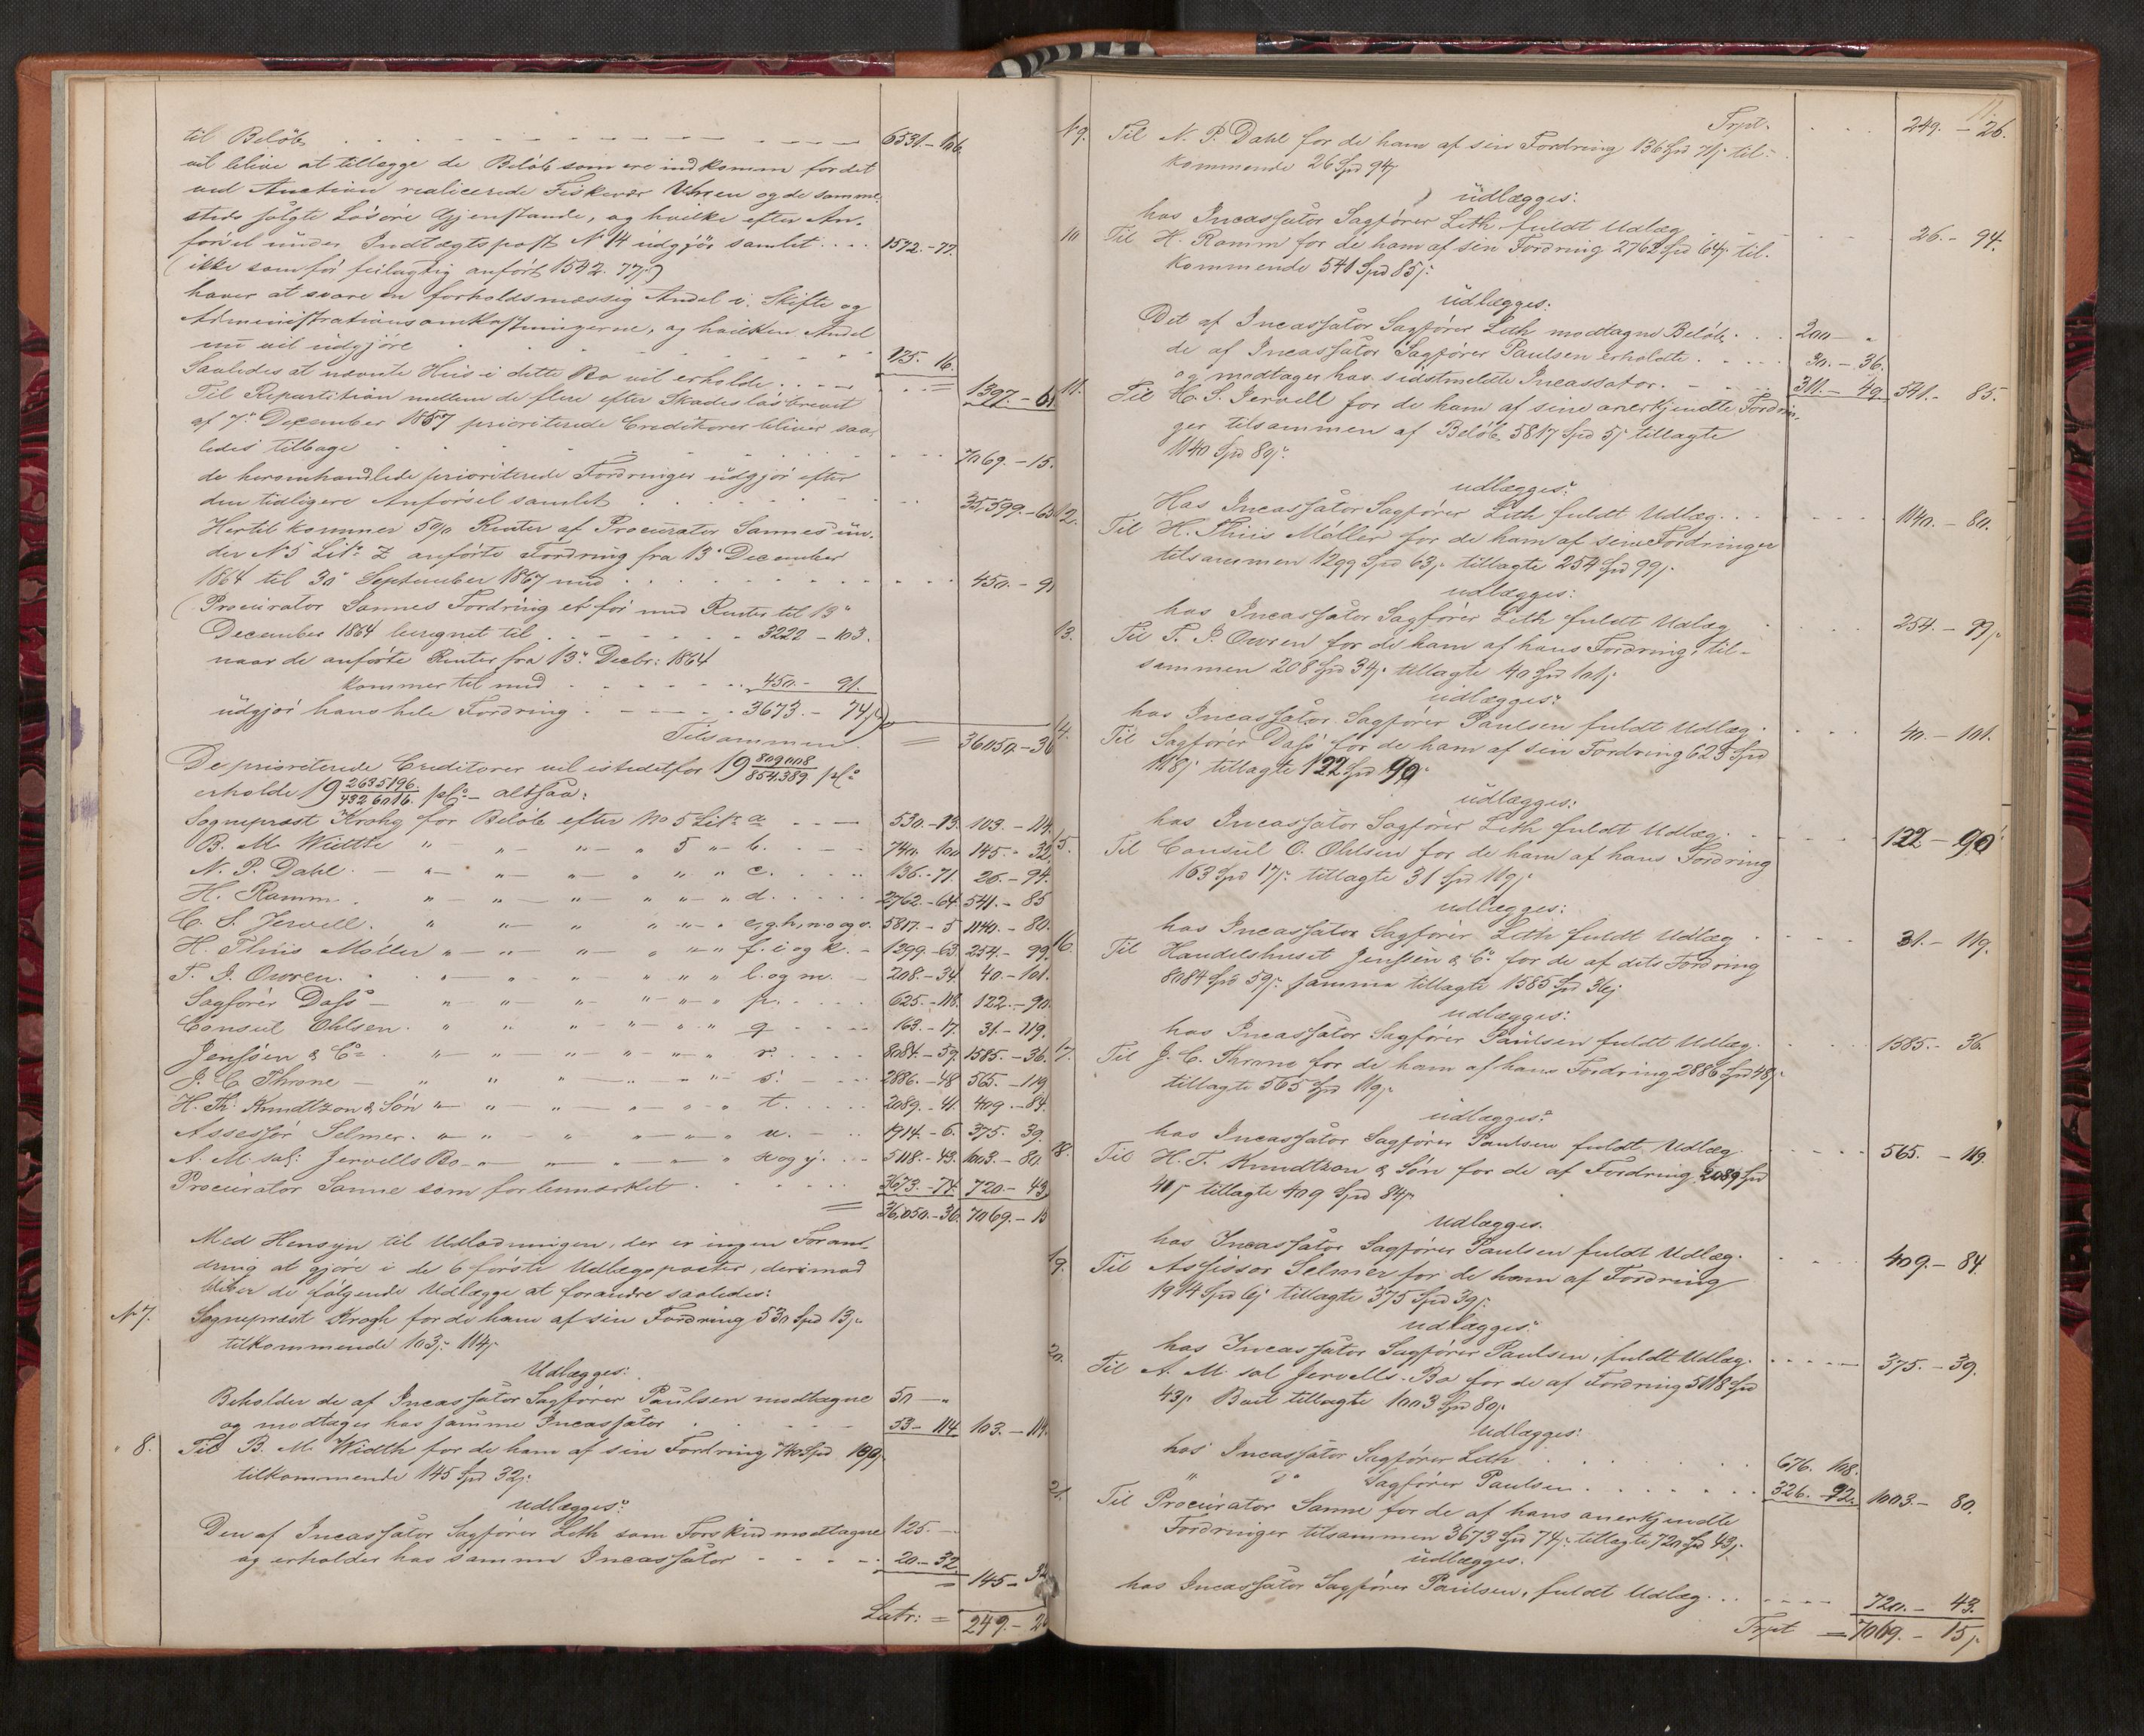 til Beløb . . . 6531 - 106.
vil blive at tillægge de Beløb som ere indkomm for det
ved Auction realicerede Fiskevær og de samme-
steds solgte Løsøre Gjenstande, og hvilke efter An-
førsel under Indtægtspost N 14 udgjør samlet . . . . 1572. - 77.
(ikke som før feilagtig anført 1542. 77 ƒ)
haver at svare en forholdsmæssig Andel i Skifte og
Administrationsomkostningerne, og hvilken Andel
nu vil udgjøre . . . 175. 16.
Saaledes at nævnte Huus i dette Bo vil erholde . . . . = 1397. - 61.
Til Repartition mellem de flere efter Skadesløsbrevet
af 7de December 1857 prioriterede Creditorer bliver saa-
ledes tilbage . . . 7069. - 15.
de heromhandlede prioriterede Fordringer udgjør efter
den tidligere Anførsel samlet . . . 35,599. - 65
Hertil kommer 5 0/0 Renter af Procurator Sannes un-
der N 5 Litr Z anførte Fordring fra 13de December
1864 til 30 September 1867 med . . . 450. - 91
(Procurator Sannes Fordring er før med Renter til 13de
December 1864 beregnet til . . . 3222 - 103.
naar de anførte Renter fra 13de Decbr: 1864
kommer til med . . . 450. - 91.
udgjør hans hele Fordring . . . 3673. - 74 ƒ)
Tilsammen. = 36050. - 36
De prioriterede Creditorer vil istedetfor 19 809008/854389 pCt
erholde 19 2635196/4326016 pCt - altsaa:
Sogneprest Krohg for Beløb efter No 5 Litr a . . . 530. - 13. 103. - 114.
B. M. Widthe " - " - " - " 5 " - b. . . . 740. 100 145. - 32.
N. P. Dahl. - " - " - " - " " " c. . . . 136. - 71. 26. - 94.
H. Ramm. " - " - " - " " - " d. . . . 2762. - 64. 541. - 85
C. S. Jervell. " " - " " " - " e, g, h, n og o. 5817. - 5 1140. - 80.
H. Thiis Møller " - " - " - " " " f. i og k. - 1299. - 63. 254. - 99.
T. J. Owren. . " - " " " " " l. og m. - 208. - 34. 40. - 101.
Sagfører Dass - " " - " - " - " - " p. . . . 625. - 118. 122. - 90.
Consul Ohlsen. " " . " - " - " " q . . . 163. - 17. 31 - 119.
Jenssen & Co . " - " - " - " - " - " r. . . . 8084. - 59. 1585. - 36.
J. C. Throne - " " " - " - " s. . . . 2886. - 48 565. - 119
H. Th: Knudtzon & Søn " - " - " - " - " " t. . . . 2089. - 41. 409. - 84.
Assessor Selmer. " - " - " - " - " " u. - . . 1914. - 6. 375. 39.
A. M. sal: Jervells Bo - " - " - " - " " x og y. . . 5118. - 43. 1003. - 80
Procurator Sanne som forbemærket . . . 3673. - 74. 720. - 43
= 36,050. - 36. 7069. - 15
Med Hensyn til Udlodningen, der er ingen Foran-
dring at gjøre i de 6 første Udlægsposter, derimod
bliver de følgende Udlægge at forandre saaledes:
N 7. Sogneprest Krogh for de ham af sin Fordring 530 Spd 13 ƒ
tilkommende 103 ƒ 114 ƒ
Udlægges:
Beholder de af Incassator Sagfører Paulsen modtagne 50 - "
og modtager hos samme Incassator . . . 53 - 114. 103. - 114.
" 8. Til B. M. Width for de ham af sin Fordring 740 Spd 100 ƒ
tilkommende 145 Spd 32 ƒ
Udlægges:
Den af Incassator Sagfører Leth som Forskud modtagne 125. -
og erholder hos samme Incassator . . . 20 - 32. = 145 - 32
Latr: = 249. - 26
Trpt. . . . 249. - 26.
N 9. Til N. P. Dahl for de ham af sin Fordring 136 Spd 71 ƒ til-
kommende 26 Spd 94 ƒ
udlægges:
hos Incassator Sagfører Leth fuldt Udlæg . . . 26. - 94.
10 Til H. Ramm for de ham af sin Fordring 2762 Spd 64 ƒ til-
kommende 541 Spd 85 ƒ.
udlægges:
Det af Incassator Sagfører Leth modtagne Beløb . . . 200 - "
de af Incassator Sagfører Paulsen erholdte . . . 30. - 36.
og modtager hos sidstmeldte Incassator . . . 311. - 49. 541. - 85.
11. Til C. S. Jervell for de ham af sine anerkjendte Fordrin-
ger tilsammen af Beløb 5817 Spd 5 ƒ tillagte
1140 Spd 80 ƒ.
udlægges:
Hos Incassator Sagfører Leth fuldt Udlæg . . . 1140. - 80.
12. Til H. Thiis Møller for de ham af sine Fordringer
tilsammen 1299 Spd 63 ƒ tillagte 254 Spd 99 ƒ.
udlægges:
hos Incassator Sagfører Leth fuldt Udlæg . . . 254. - 99 ƒ
13. Til T. J. Owren for de ham af hans Fordring, til-
sammen 208 Spd 34 ƒ tillagte 40 Spd 101 ƒ
udlægges:
hos Incassator Sagfører Paulsen fuldt Udlæg . . . 40. - 101.
14. Til Sagfører Dass for de ham af sin Fordring 625 Spd
118 ƒ tillagte 122 Spd 90 ƒ
udlægges:
hos Incassator Sagfører Leth fuldt Udlæg . . . 122 - 90
15. Til Consul O. Ohlsen for de ham af hans Fordring
163 Spd 17 ƒ. tillagte 31 Spd 119 ƒ
udlægges:
hos Incassator Sagfører Leth fuldt Udlæg . . . 31. - 119.
16. Til Handelshuset Jenssen & Co for de af dets Fordring
8084 Spd 59 ƒ. samme tillagte 1585 Spd 36 ƒ
udlægges:
hos Incassator Sagfører Paulsen fuldt Udlæg. . . 1585. - 36.
17. Til J. C. Throne for de ham af hans Fordring 2886 Spd 48 ƒ
tillagte 565 Spd 119 ƒ
udlægges:
hos Incassator Sagfører Paulsen fuldt Udlæg . . . 565. - 119.
18. Til H. T. Knudtzon & Søn for de af Fordring 2089 Spd
41 ƒ tillagte 409 Spd 84 ƒ
Udlægges.
hos Incassator Sagfører Paulsen fuldt Udlæg. . . 409. - 84.
19. Til Assessor Selmer for de ham af Fordring
1914 Spd 6 ƒ tillagte 375 Spd 39 ƒ.
udlægges:
hos Incassator Sagfører Paulsen, fuldt Udlæg. . . 375. - 39.
20. Til A. M. sal Jervells Bo for de af Fordring 5118 Spd
43 ƒ. Boet tillagte 1003 Spd 80 ƒ
Udlægges:
hos Incassator Sagfører Leth . . . 676. 108.
" do Sagfører Paulsen . . . 326. 92. 1003. - 80.
21. Til Procurator Sanne for de af hans anerkjendte
Fordringer tilsammen 3673 Spd 74 ƒ. tillagte 720 Spd 43 ƒ
udlægges.
hos Incassator Sagfører Paulsen, fuldt Udlæg . . . 720. - 43.
Trpt = 7069. - 15 ƒ